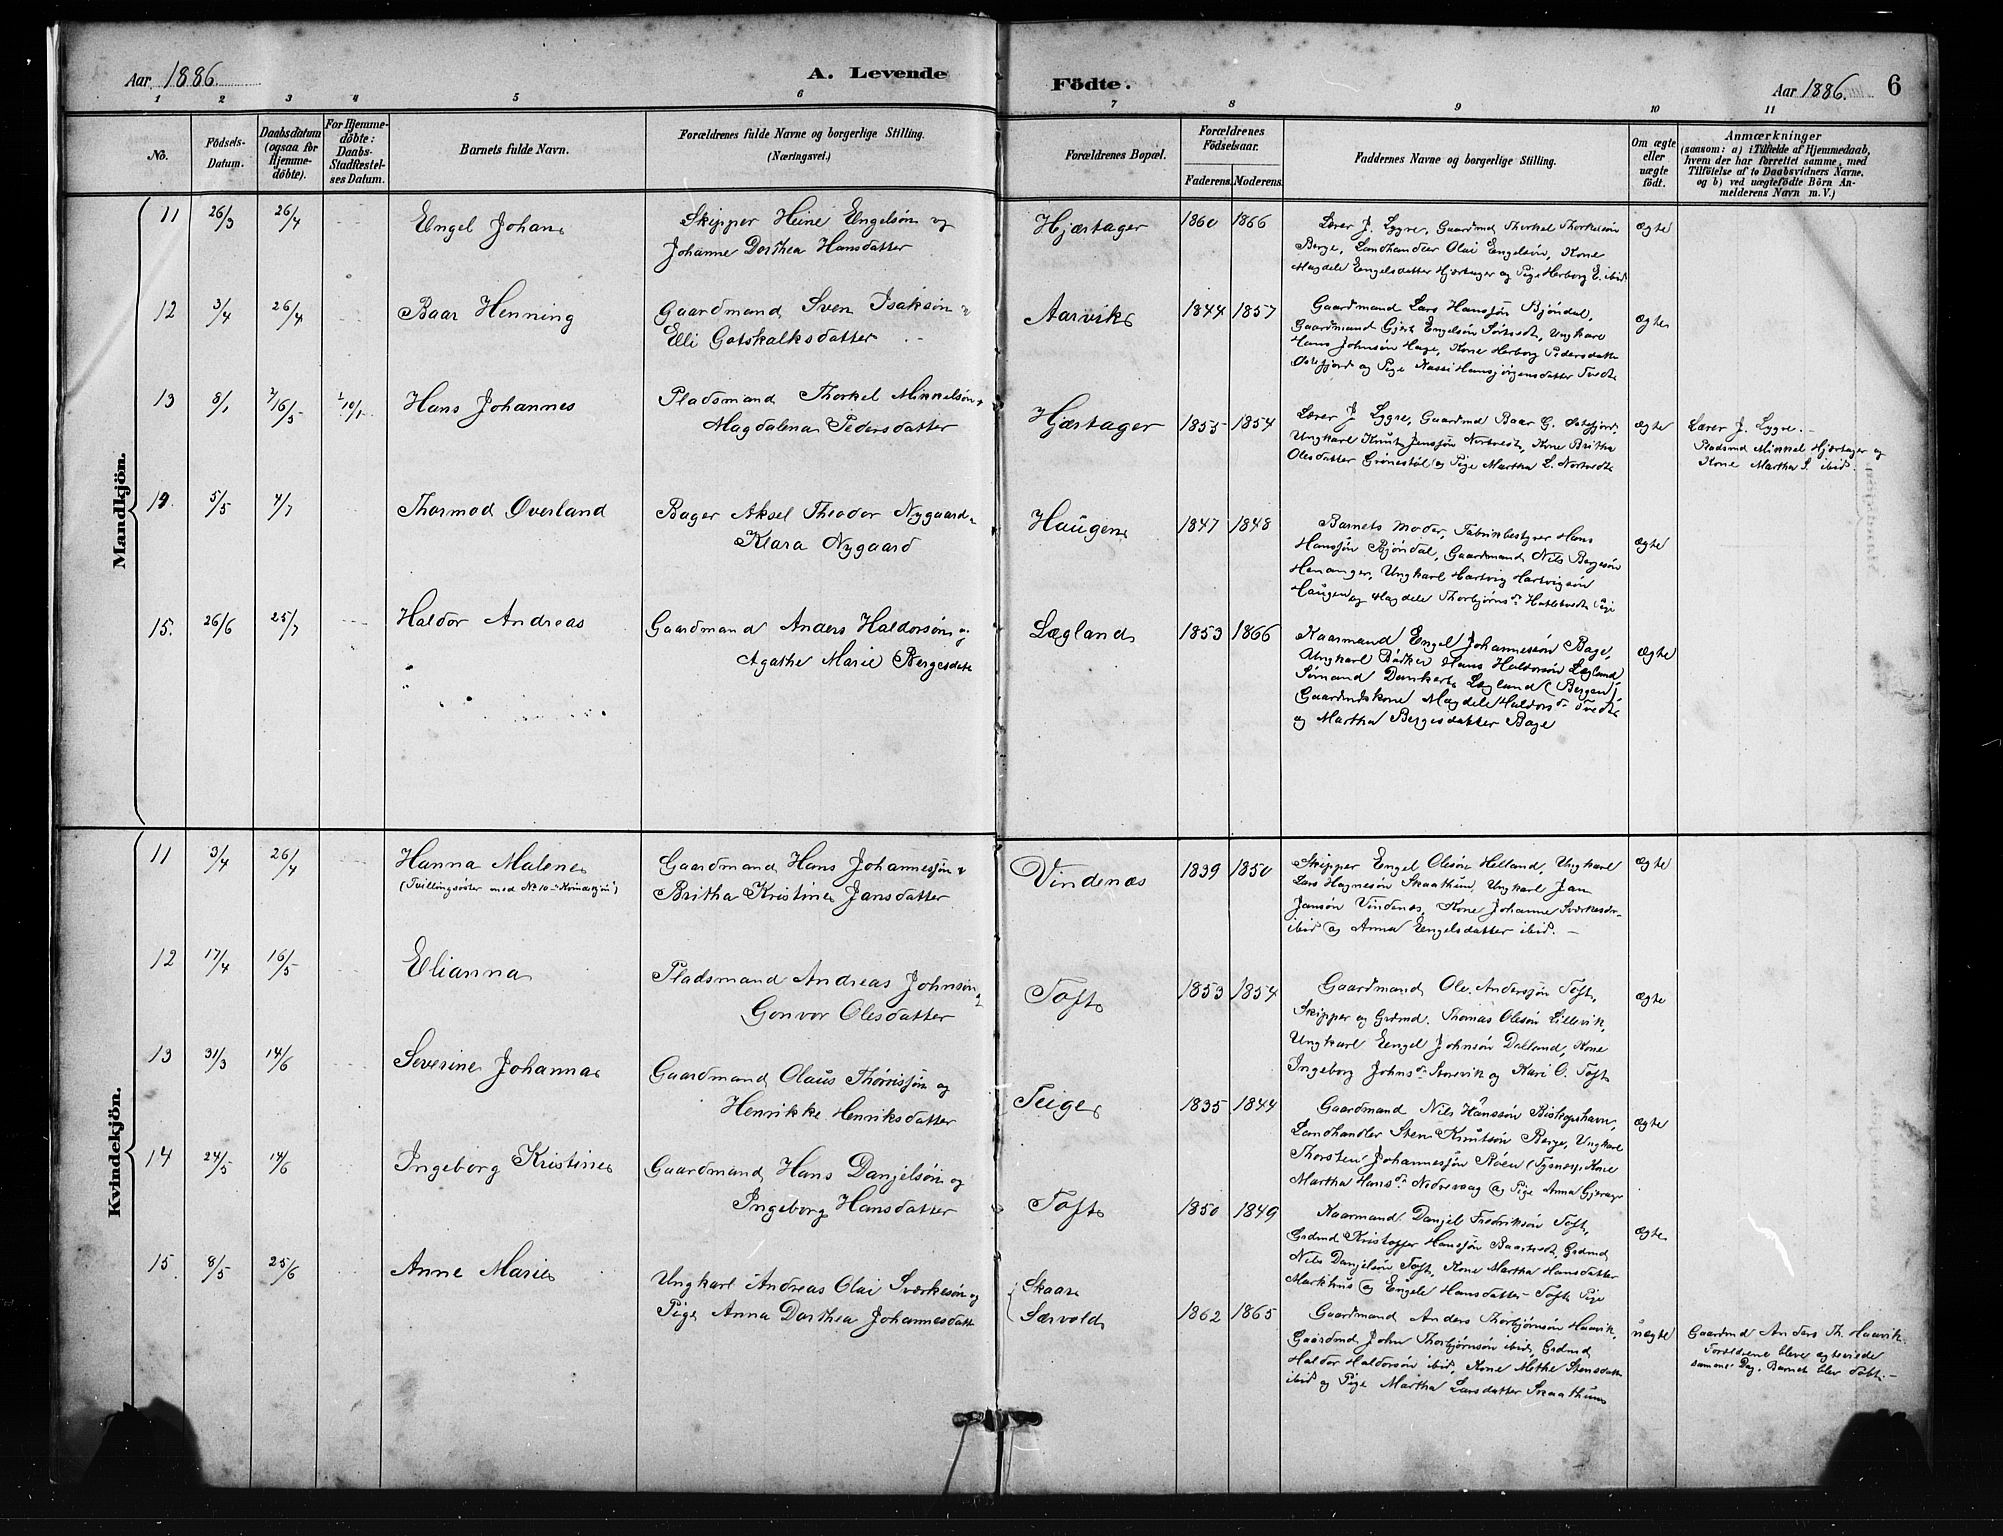 Aar 1886.
A. Levende Födte.
Aar 1886. 6
1 2 3 4 5 6 7 8 9 10 11
No.
Födsels-Datum.
Daabsdatum (ogsaa for Hjemme-döbte).
For Hjemme-döbte: Daabs-Stadfæstel-ses Datum.
Barnets fulde Navn.
Forældrenes fulde Navne og borgerlige Stilling.
(Næringsvei.)
Forældrenes Bopæl.
Forældrenes Födselsaar.
Faderens. Moderens.
Faddernes Navne og borgerlige Stilling.
Om ægte eller uægte födt.
Anmærkninger
(saasom: a) i Tilfælde af Hjemmedaab,
hvem der har forrettet samme, med
Tilföielse af to Daabsvidners Navne,
og b) ved uægtefödte Börn An-
melderens Navn m. V.)
Mandkjön.
11 26/3 26/4 Engel Johan
Skipper Heine Engelsøn og
Johanne Dorthea Hansdatter
Hjærtager 1860 1866
Lærer J. Lygre, Gaardmd Thorkel Thorkelsøn
Berge, Landhandler Olai Engelsøn, Kone
Magdele Engelsdatter Hjærtager og Pige Herborg E. ibid
ægte
12 3/4 26/4 Baar Henning
Gaardmand Sven Isaksøn &
Elli Gotskalksdatter
Aarvik 1844 1857
Gaardmand Lars Hanssøn Bjøndal,
Gaardmand Gjert Engelsøn Sørtvedt, Ungkare
Hans Johnsøn Hage, Kone Herborg Pedersdatte
Ostefjord og Pige Nassi Hansjørgensdatter Tvedte
ægte
13 8/1 2/16/5 2/10/1 Hans Johannes
Pladsmand Thorkel Minnelsøn &
Magdalena Pedersdatter
Hjærtager 1855 1854
Lærer J. Lygre, Gaardmd Baar G. Ostefjord,
Ungkarl Knut Jenssøn Nortvedt, Kone Britha
Olesdatter Grønestøl og Pige Martha L. Nortvedte
ægte
Lærer J. Lygre. –
Pladsmd Minnel Hjærtager og
Kone Martha S. ibid.
14 5/5 4/7 Thormod Overland
Bager Aksel Theodor Nygaard &
Klara Nygaard
Haugen 1847 1848
Barnets Moder, Fabrikbestyrer Hans
Hanssøn Bjøndal, Gaardmand Nils Bergesøn
Henanger, Ungkarl Hartvig Hartvigsøn
Haugen og Magdele Thorbjørnsdr Hatletvedt Pige
ægte
15. 26/6 25/7 Haldor Andreas
Gaardmand Anders Haldorsøn og
Agathe Marie Bergesdatt
Lægland 1853 1866
Kaarmand Engel Johannessøn Bage,
Ungkarl Bødker Hans Haldorsøn Lægland
Sømand Dankert Lægland (Bergen),
Gaardmdskone Magdele Haldorsdr Tvedte
og Martha Bergesdatter Bage
ægte
Kvindekjön.
11 3/4 26/4 Hanna Malene
(Tvillingsøster med No 10 – "Kvindekjøn")
Gaardmand Hans Johannessøn &
Britha Kristine Jansdatter
Vindenæs 1839 1850
Skipper Engel Olesøn Helland, Ungkarl
Lars Hagnesøn Skaathun, Ungkarl Jan
Jansøn Vindenæs, Kone Johanne Sværkesdr
ibid og Anna Engelsdatter ibid. –
ægte
12 17/4 16/5 Elianna
Pladsmand Andreas Johnsøn
og Gonvor Olesdatter
Toft 1853 1854
Gaardmand Ole Anderssøn Toft,
Skipper og Grdmd. Thomas Olesøn Lillevik,
Ungkarl Engel Johnsøn Dalland, Kone
Ingeborg Johnsdr Storevik og Kari O. Toft
ægte
13 31/3 14/6 Severine Johanna
Gaardmand Olaus Thørrissøn og
Henrikke Henriksdatter
Teige 1835 1844
Gaardmand Nils Hanssøn Biskopshavn,
Landhandler Sten Knutsøn Berge, Ungkarl
Thorsten Johannessøn Røen (Tysnes), Kone
Martha Hansdr Nedrevaag og Pige Anna Gjerage
ægte
14 24/5 14/6 Ingeborg Kristine
Gaardmand Hans Danjelsøn og
Ingeborg Hansdatter
Toft 1850 1849
Kaarmand Danjel Fredriksøn Toft,
Grdmd Kristoffer Hanssøn Baartvedt, Grdmd
Nils Danjelsøn Toft, Kone Martha Hansdatter
Markhus og Engele Hansdatter Toft Pige
ægte
15 8/5 25/6 Anne Marie
Ungkarl Andreas Olai Sværkesøn og
Pige Anna Dorthea Johannesdatt
Skaar
Særvold 1862 1865
Gaardmand Anders Thorbjørnsøn Haavik,
Gaardmd John Thorbjørnsøn ibid, Grdmd
Haldor Haldorsøn ibid, Kone Methe Stensdatte
ibid og Pige Martha Larsdatter Skaathun
uægte
Gaardmd Anders Th. Haavik.
Forældrene bleve ægteviede
samme Dag, Barnet blev døbt. –